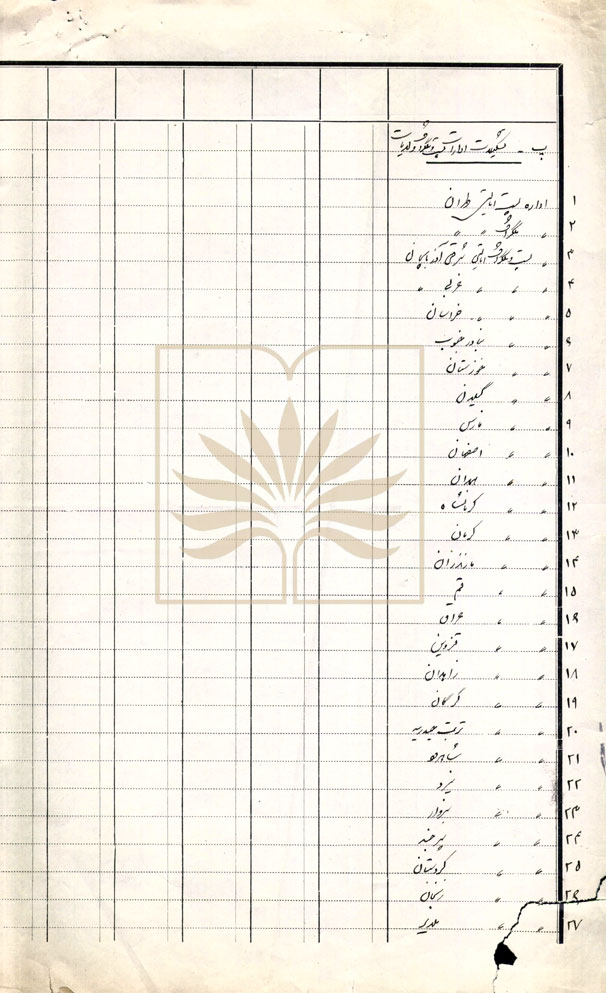 ب - تشکیلات ادارات پست و تلگراف ولایات
۱ اداره پست ایالتی طهران
۲ " تلگراف " "
۳ " پست و تلگراف ایالتی شرقی آذربایجان
۴ " " " " غربی "
۵ " " " خراسان
۶ " " بنادر جنوب
۷ " " خوزستان
۸ " " گیلان
۹ " " فارس
۱۰ " " اصفهان
۱۱ " " همدان
۱۲ " " کرمانشاه
۱۳ " " کرمان
۱۴ " " مازندران
۱۵ " " قم
۱۶ " " عراق
۱۷ " " قزوین
۱۸ " " زاهدان
۱۹ " " گرگان
۲۰ " " تربت حیدریه
۲۱ " " شاهرود
۲۲ " " یزد
۲۳ " " سبزوار
۲۴ " " بیرجند
۲۵ " " کردستان
۲۶ " " زنجان
۲۷ " "